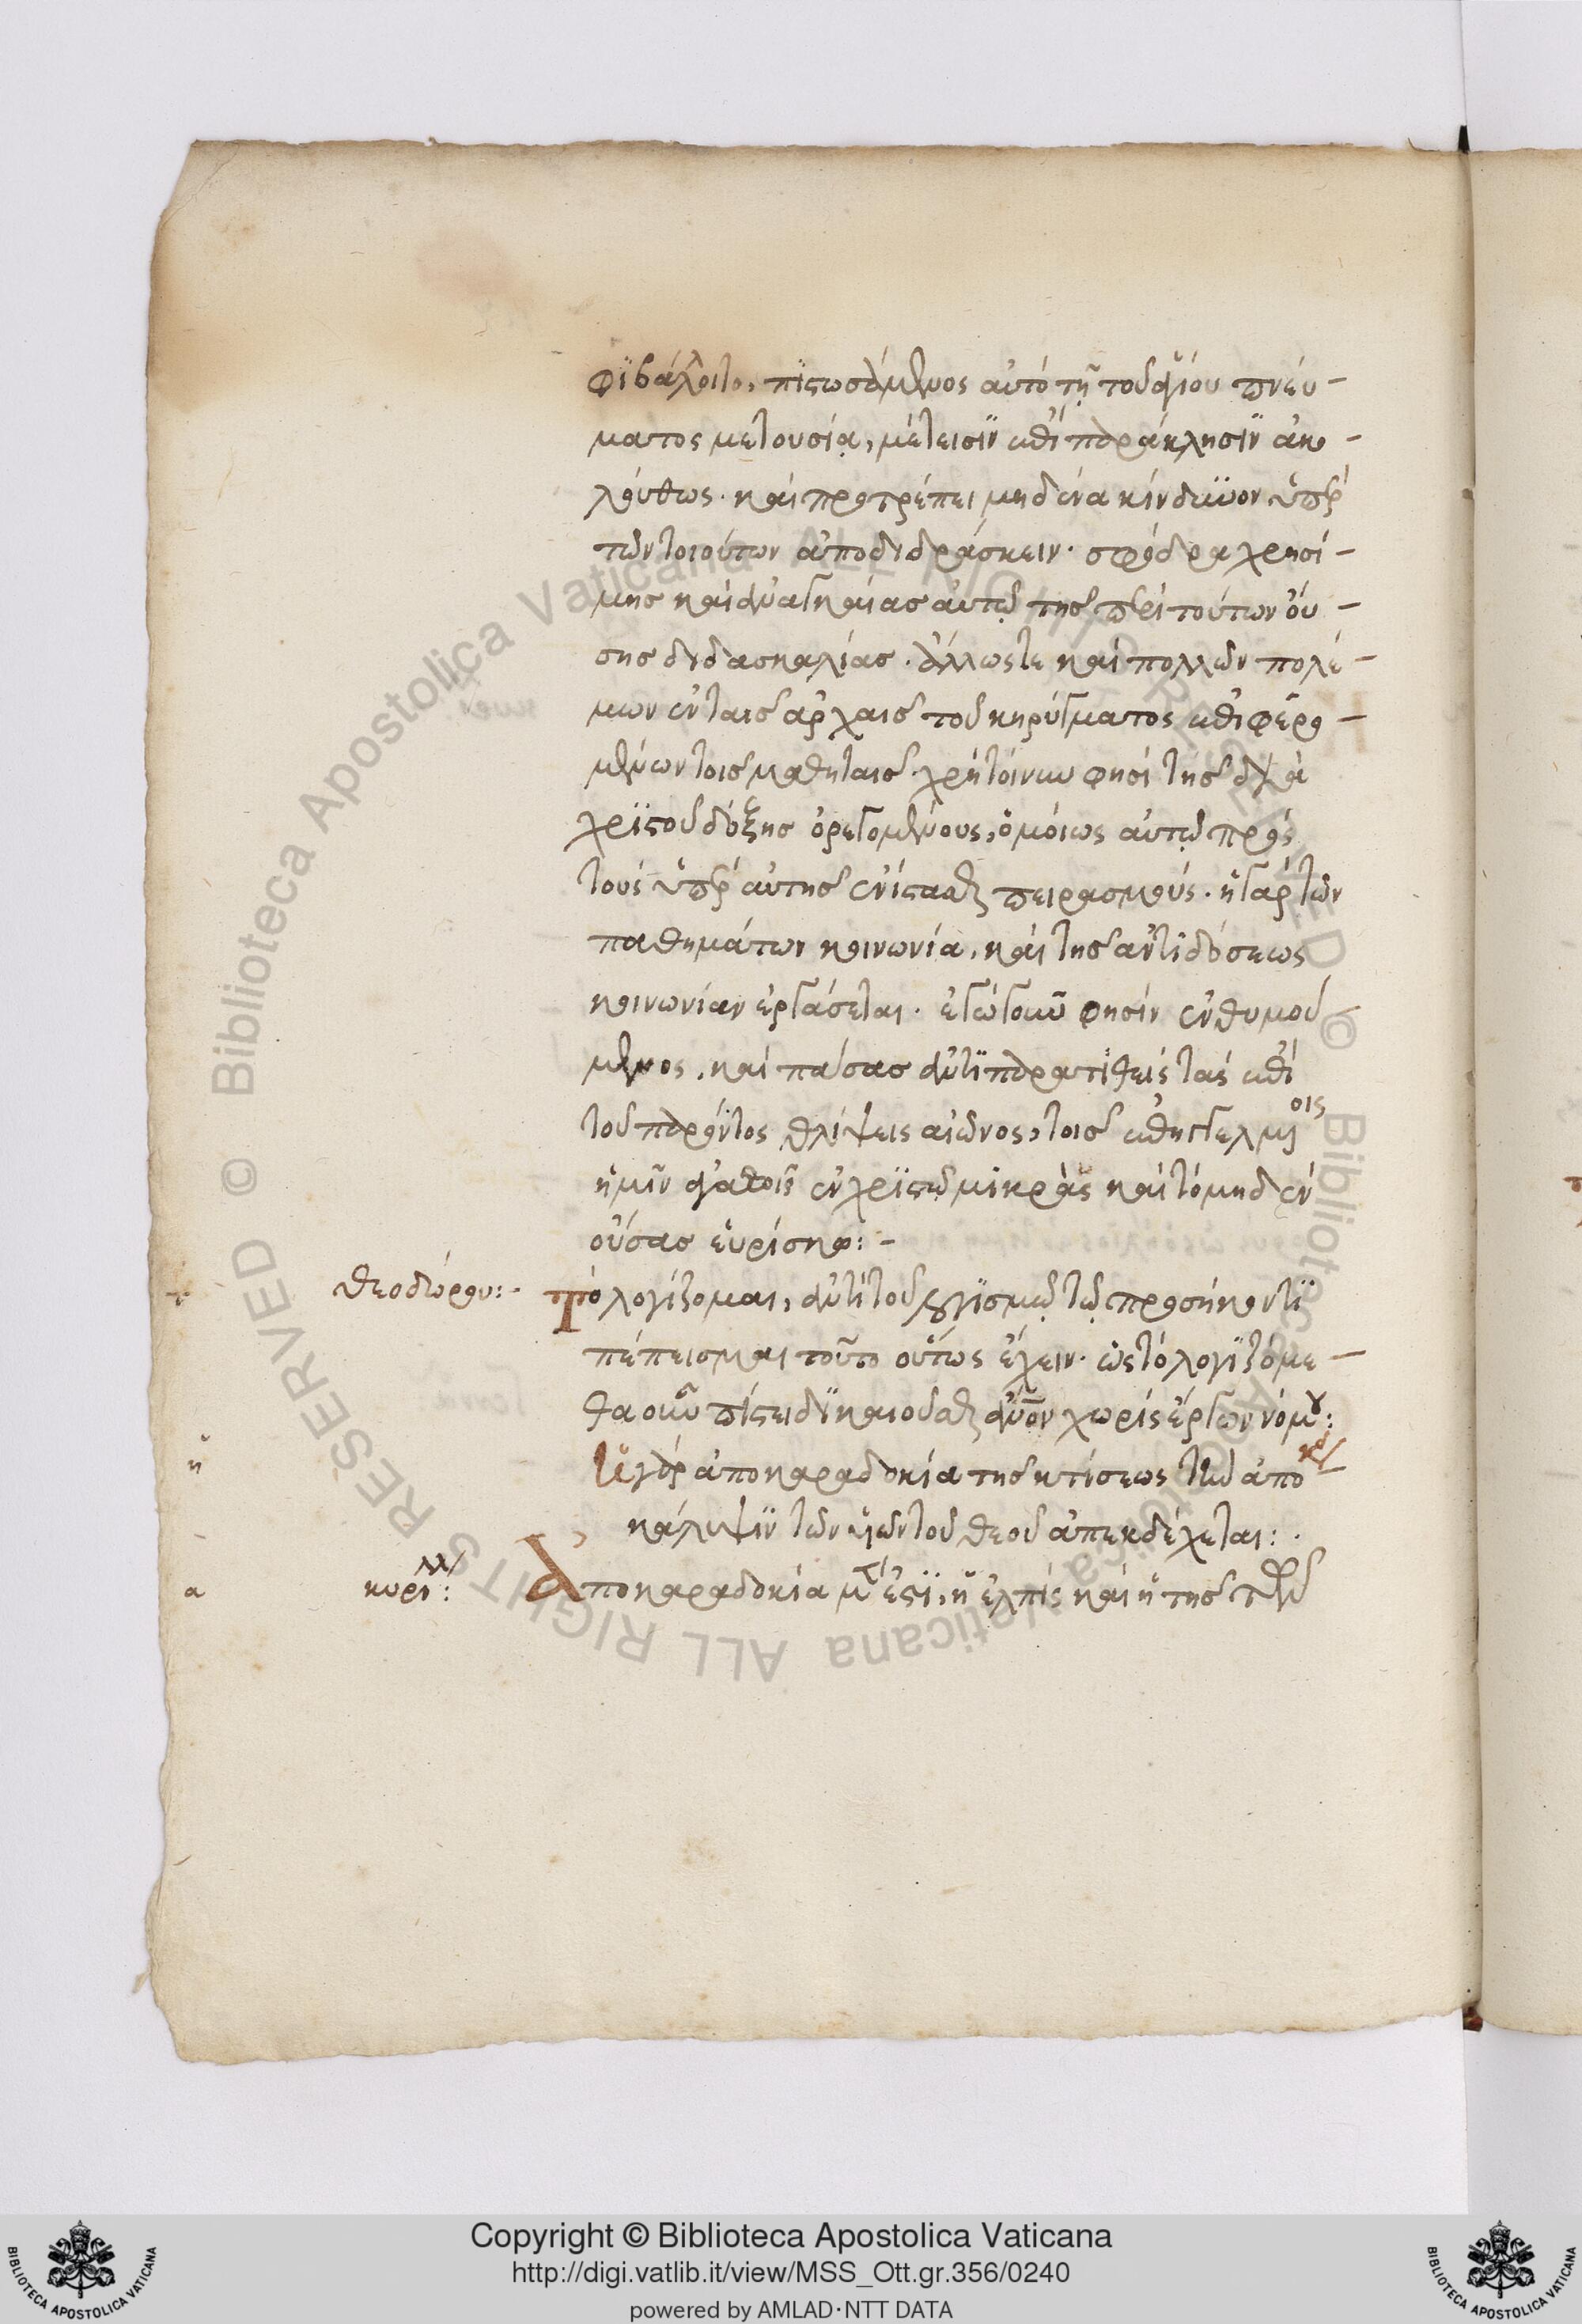 φϊβάλλοιτο, πϊστωσάμενος αὐτό τῇ τοῦ ἁγίου πνεύ-
ματος μετουσίᾳ, μέτεισϊν ἐπὶ παράκλησϊν ἀκο-
λούθως. καὶ προτρέπει μηδένα κίνδυνον ὑπὲρ
τῶν τοιούτων ἀποδιδράσκειν. σφόδρα χρησί-
μης καὶ ἀναγκαίας αὐτῷ τῆς περὶ τούτων οὔ-
σης διδασκαλίας. ἄλλως τε καὶ πολλῶν πολέ-
μων ἐν ταῖς ἀρχαῖς τοῦ κηρύγματος ἐπιφερο-
μένων τοῖς μαθηταῖς. χρὴ τοίνυν φησὶ τῆς διὰ
χρϊστοῦ δόξης ὀρεγομένους, ὁμοίως αὐτῷ πρὸς
τοὺς ὑπὲρ αὐτῆς ἐνίστασθαι πειρασμούς. ἡ γὰρ τῶν
παθημάτων κοινωνία, καὶ τῆς ἀντιδόσεως
κοινωνίαν ἐργάσεται. ἐγὼ γοῦν φησὶν ἐνθυμού
μενος, καὶ πάσας ἀντϊπαρατιθεὶς τὰς ἐπὶ
τοῦ παρόντος θλίψεις αἰῶνος, τοῖς ἐπηγγελμένοις
ἡμῖν ἀγαθοῖς ἐν χρϊστῷ μικρὰς καὶ τὸ μηδὲν
οὔσας εὑρίσκω: -
θεοδώρου: τὸ λογίζομαι, ἀντὶ τοῦ λογϊσμῷ τῷ προσήκοντϊ
πέπεισμαι τοῦτο οὕτως ἔχειν. ὡς τὸ λογϊζόμε-
θα οὖν πίστει δϊκαιοῦσθαι ἄνθρωπον χωρὶς ἔργων νόμου:
η Ἡ γὰρ ἀποκαραδοκία τῆς κτίσεως τὴν ἀπο
κάλυψϊν τῶν υἱῶν τοῦ θεοῦ ἀπεκδέχεται:
α κυρίλλου: Ἀποκαραδοκία μέν ἐστϊ, ἡ ἐλπὶς καὶ ἡ τῆς τοῦ
Copyright © Biblioteca Apostolica Vaticana
http://digi.vatlib.it/view/MSS_Ott.gr.356/0240
powered by AMLAD·NTT DATA
BIBLIOTECA APOSTOLICA VATICANA
BIBLIOTECA APOSTOLICA VATICANA
© Biblioteca Apostolica Vaticana ALL RIGHTS RESERVED © Biblioteca Apostolica Vaticana ALL RIGHTS RESERVED